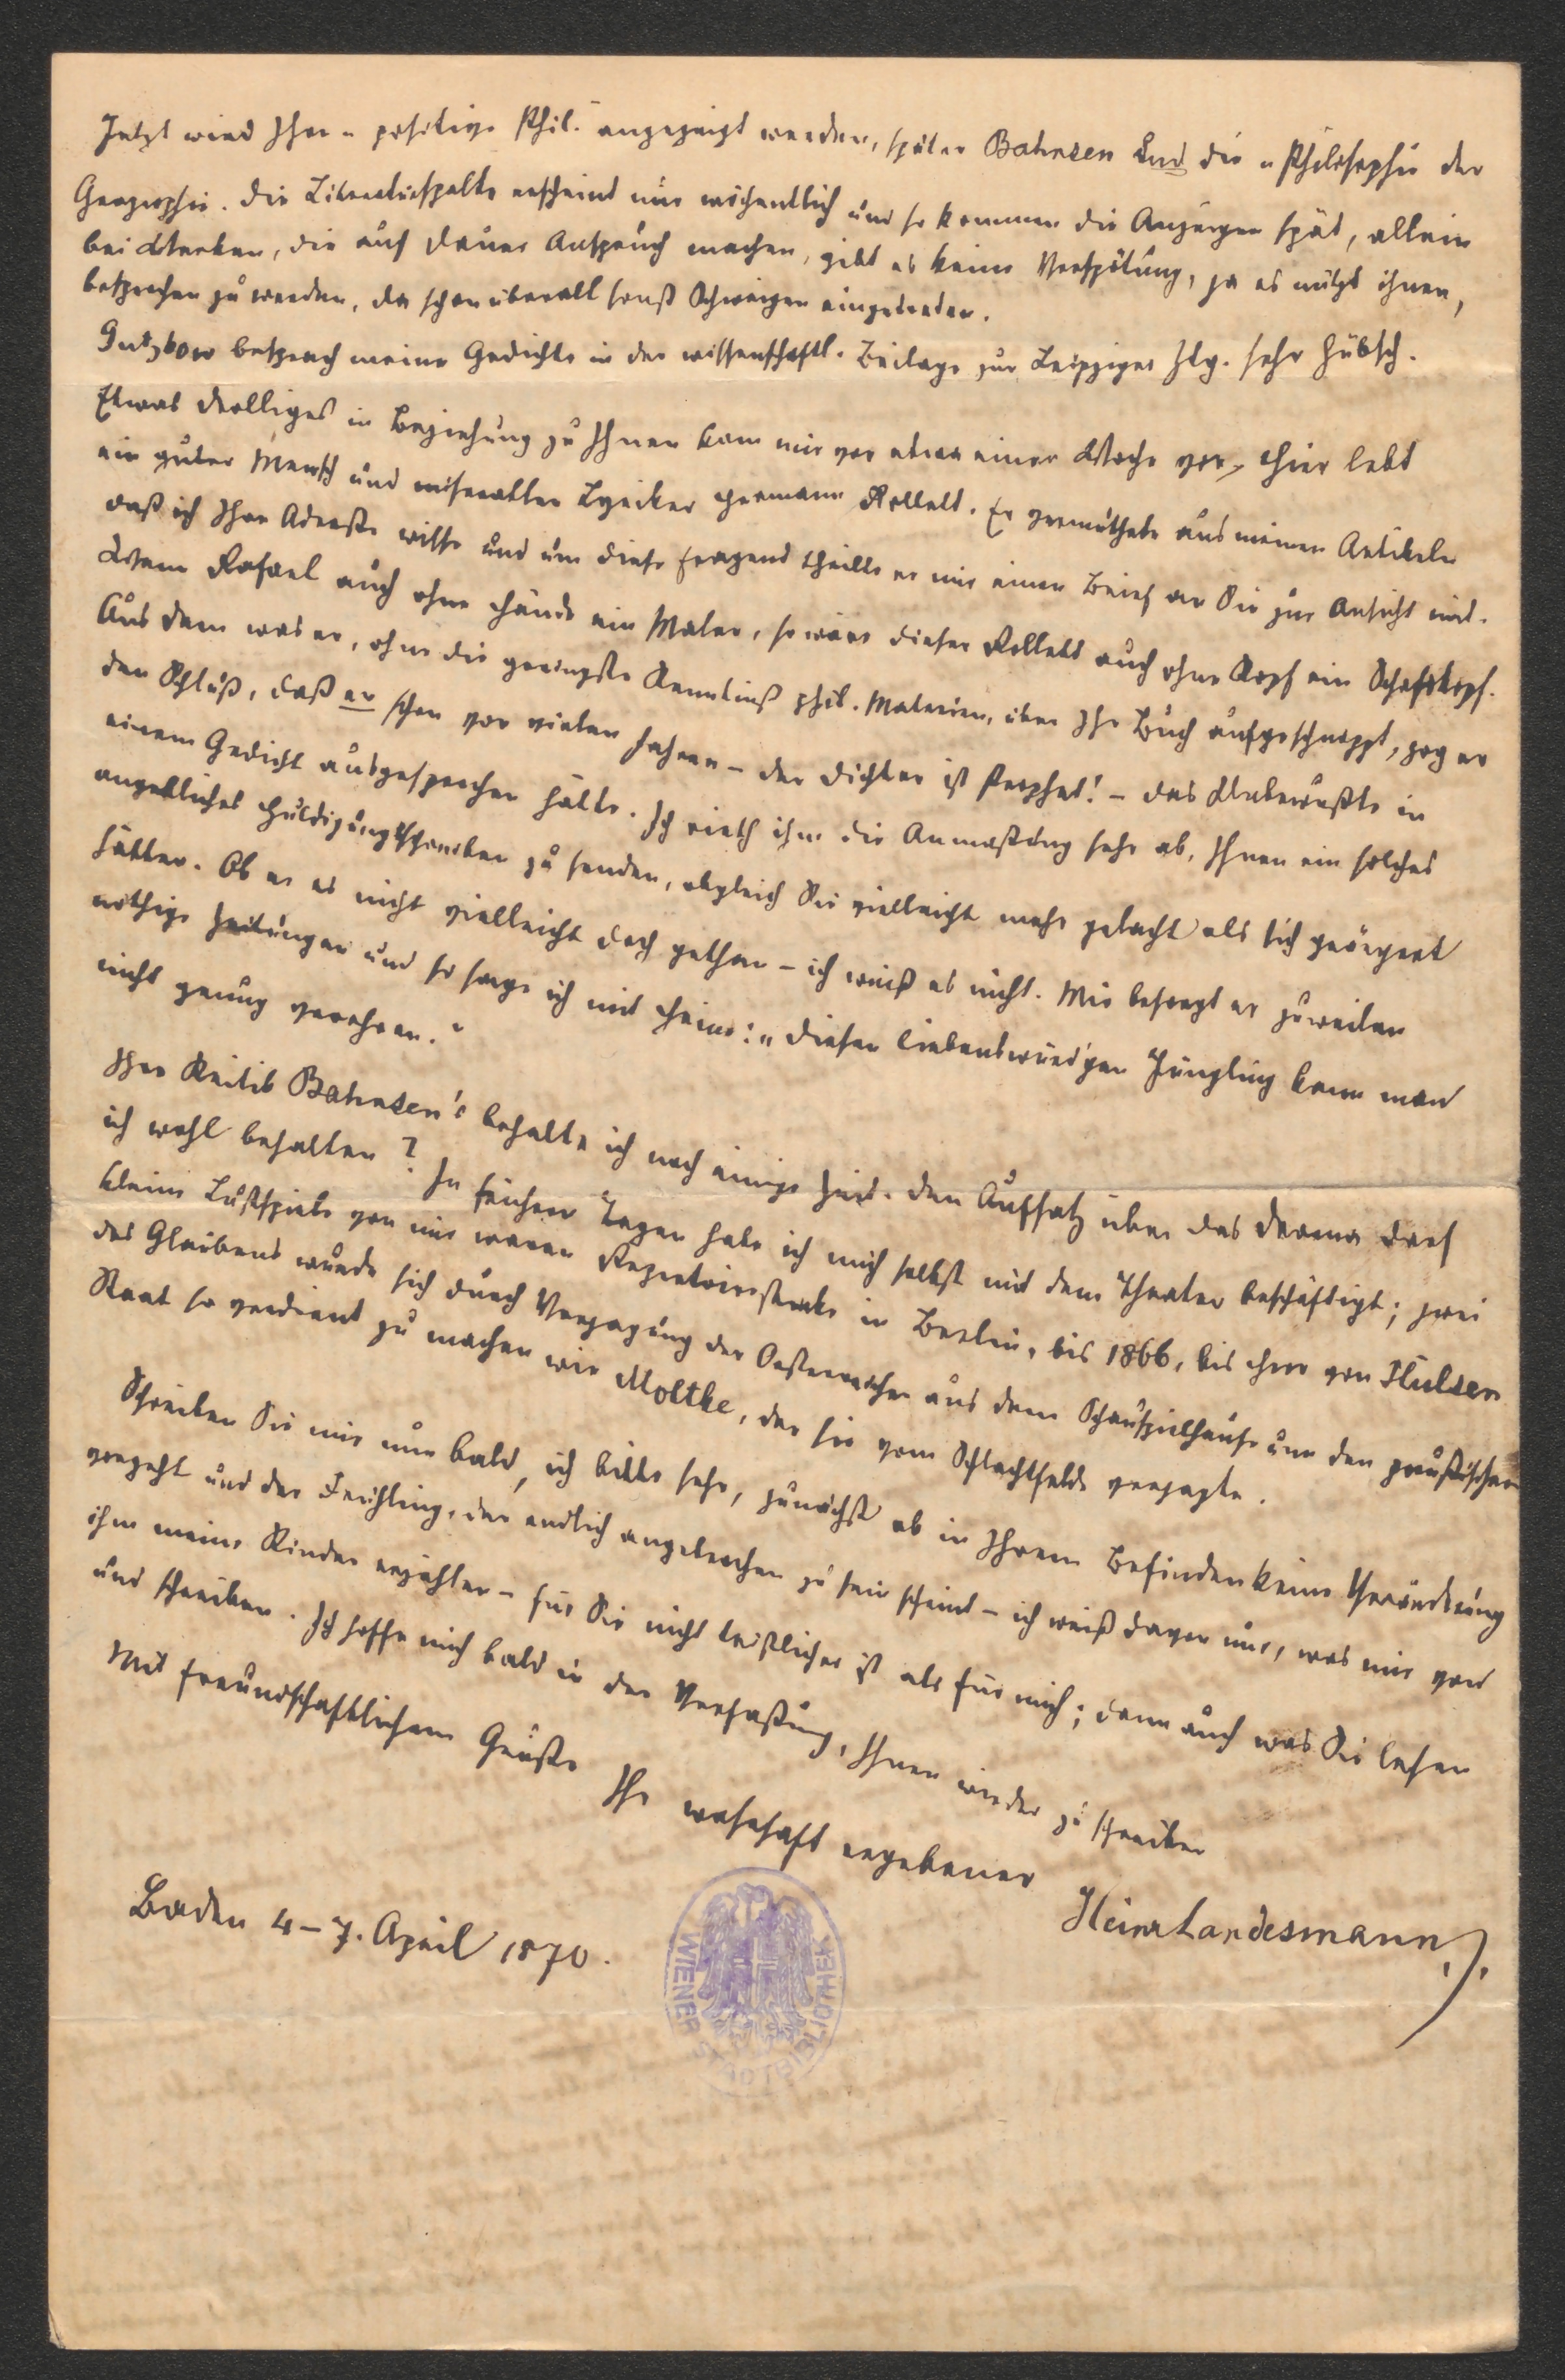 Jetzt wird Ihre „positive Phil." angezeigt werden, später Bahnsen und die „Philosophie der
Geographie. Die Literaturspalte erscheint nur wöchentlich und so kommen die Anzeigen spät, allein
bei Werken, die auf Dauer Anspruch machen, gibt es keine Verspätung, ja es nützt ihnen,
besprochen zu werden, da schon überall sonst Schweigen eingetreten.
Gutzkow besprach meine Gedichte in der wissenschaftl. Beilage zur Leipziger Ztg. sehr hübsch.
Etwas Drolliges in Beziehung zu Ihnen kam mir vor etwa einer Woche vor. Hier lebt
ein guter Mensch und miserabler Lyriker Hermann Rollett. Er vermuthete aus meinen Artikeln
daß ich Ihre Adresse wisse und um diese fragend theilte er mir einen Brief an Sie zur Ansicht mit.
Wenn Rafael auch ohne Hände ein Maler, so wäre dieser Rollett auch ohne Kopf ein Schafskopf.
Aus dem was er, ohne die geringste Kenntniß phil. Materien, über Ihr Buch aufgeschnappt, zog er
den Schluß, daß er schon vor vielen Jahren – der Dichter ist Prophet! – das Unbewußte in
einem Gedicht ausgesprochen hätte. Ich rieth ihm die Anmaßung sehr ab, Ihnen ein solches
angebliches Huldigungsschreiben zu senden, obgleich Sie vielleicht mehr gelacht als sich geärgert
hätten. Ob er es nicht vielleicht doch gethan – ich weiß es nicht. Mir besorgt er zuweilen
nöthige Zeitungen und so sage ich mit Heine: „Diesen liebenswürd'gen Jüngling kann man
nicht genug verehren."
Ihre Kritik Bahnsen's behalte ich noch einige Zeit. Den Aufsatz über das Drama darf
ich wohl behalten? In frühern Tagen habe ich mich selbst mit dem Theater beschäftigt; zwei
kleine Lustspiele von mir waren Repertoirestücke in Berlin, bis 1866, bis Herr von Hülsen
des Glaubens wurde sich durch Verjagung der Oesterreicher aus dem Schauspielhause um den preußischen
Staat so verdient zu machen wie Moltke, der sie vom Schlachtfelde verjagte.
Schreiben Sie mir nun bald, ich bitte sehr, zunächst ob in Ihrem Befinden keine Veränderung
vorgeht und der Frühling, der endlich angebrochen zu sein scheint – ich weiß davon nur, was mir von
ihm meine Kinder erzählen – für Sie nicht tröstlicher ist als für mich; dann auch was Sie lesen
und schreiben. Ich hoffe mich bald in der Verfaßung, Ihnen wieder zu schreiben
Mit freundschaftlichem Gruße
Ihr wahrhaft ergebener
Heinr Landesmann
Baden 4–7. April 1870.
WIENER STADTBIBLIOTHEK